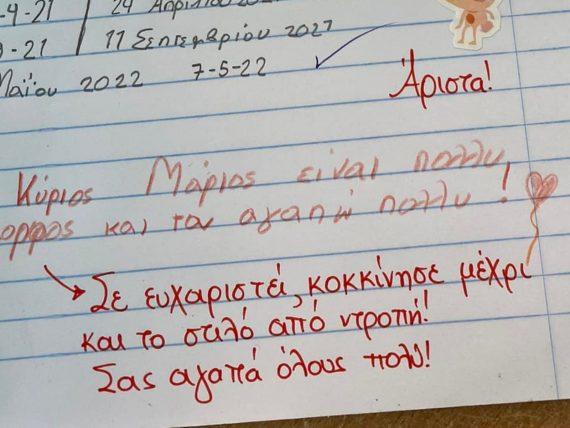 -4-21 | 24 Απριλίου 20
-21 | 11 Σεπτεμβρίου 2027
Μαΐου 2022 7-5-22
Άριστα!
Κύριος Μάριος είναι πολλυ
ορφος και τον αγαπώ πολλυ!
Σε ευχαριστεί, κοκκίνησε μέχρι
και το στιλό από ντροπή!
Σας αγαπά όλους πολύ!